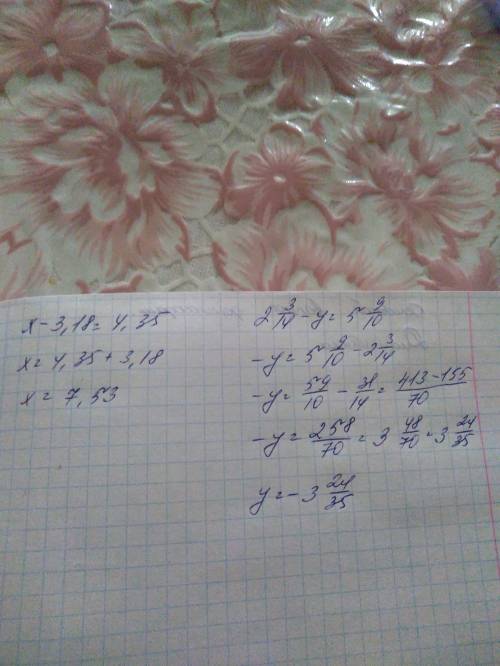 x - 3,18 = 4,35
x = 4,35 + 3,18
x = 7,53
2 3/14 - y = 5 9/10
-y = 5 9/10 - 2 3/14
-y = 59/10 - 31/14 = 413-155/70
-y = 258/70 = 3 48/70 = 3 24/35
y = -3 24/35